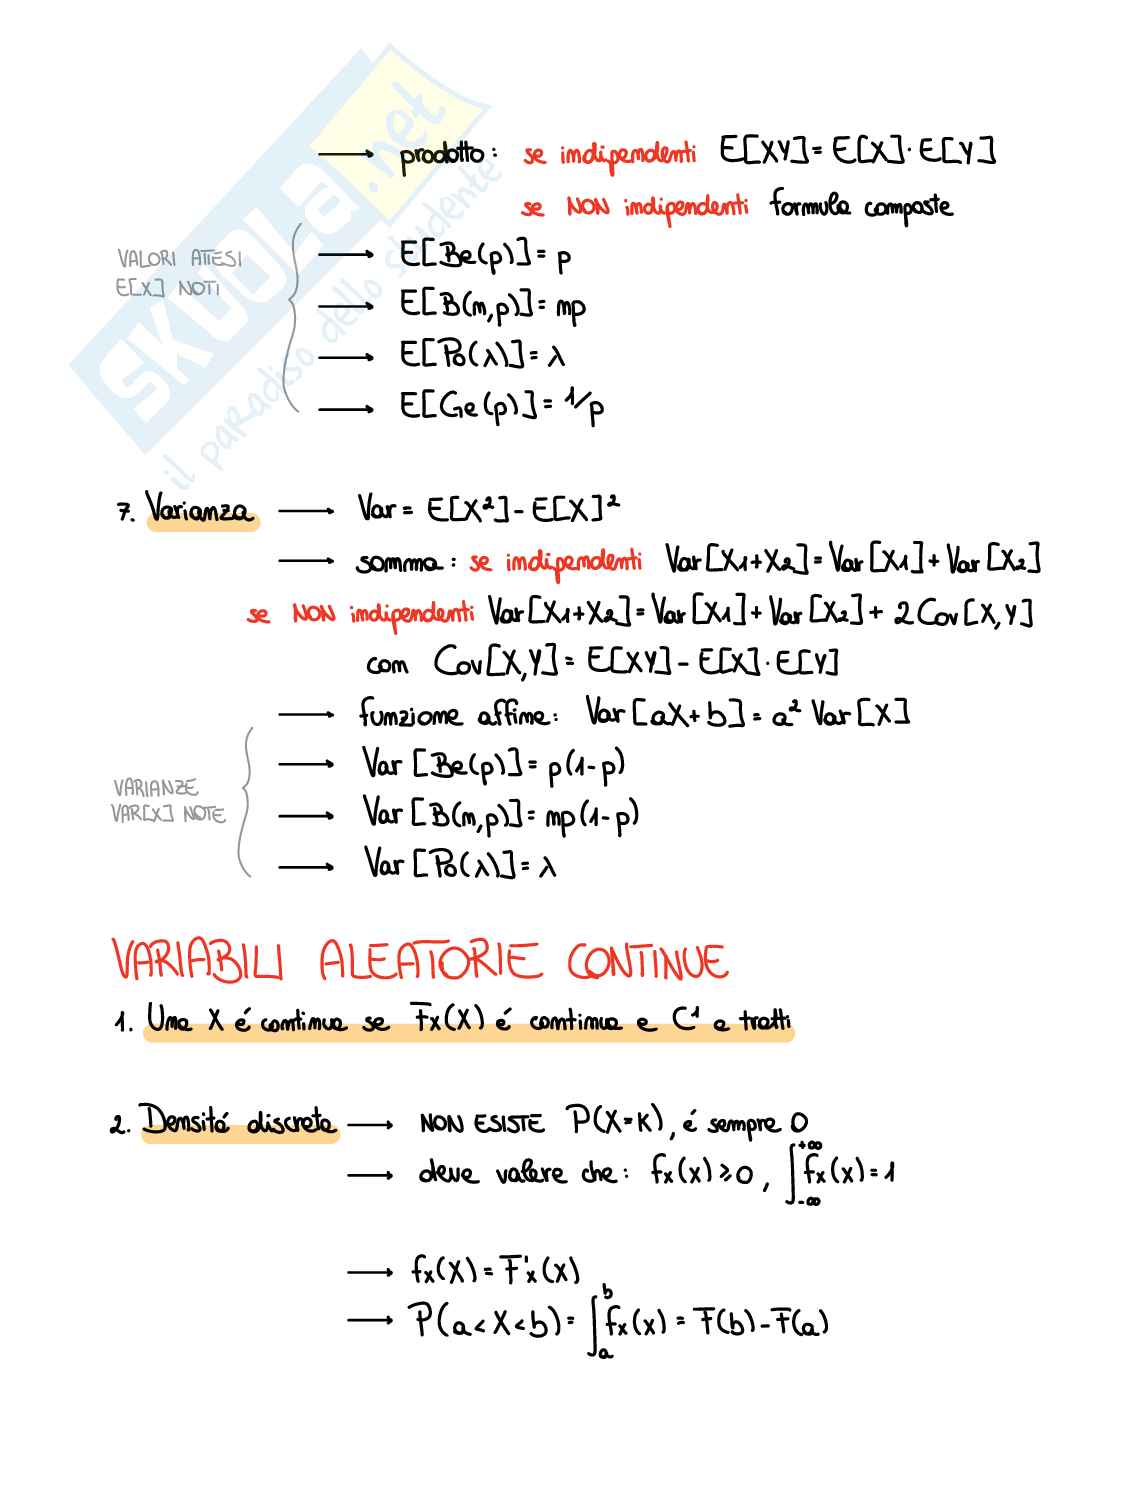 SKUOLA.net
il paradiso dello studente
→ prodotto: se indipendenti E[XY] = E[X]·E[Y]
se NON indipendenti formula composte
VALORI ATTESI
E[X] NOTI
→ E[Be(p)] = p
→ E[B(n,p)] = np
→ E[Po(λ)] = λ
→ E[Ge(p)] = 1/p
7. Varianza → Var = E[X²] - E[X]²
→ somma: se indipendenti Var[X1+X2] = Var[X1] + Var[X2]
se NON indipendenti Var[X1+X2] = Var[X1] + Var[X2] + 2Cov[X,Y]
con Cov[X,Y] = E[XY] - E[X]·E[Y]
→ funzione affine: Var[aX+b] = a² Var[X]
VARIANZE
VAR[X] NOTE
→ Var[Be(p)] = p(1-p)
→ Var[B(n,p)] = np(1-p)
→ Var[Po(λ)] = λ
VARIABILI ALEATORIE CONTINUE
1. Una X é continua se Fx(X) é continua e C¹ a tratti
2. Densitá discreta → NON ESISTE P(X=K), é sempre 0
→ deve valere che: fx(x) ⩾ 0, ∫_{-∞}^{+∞} fx(x) = 1
→ fx(X) = F'x(X)
→ P(a<X<b) = ∫_a^b fx(x) = F(b) - F(a)